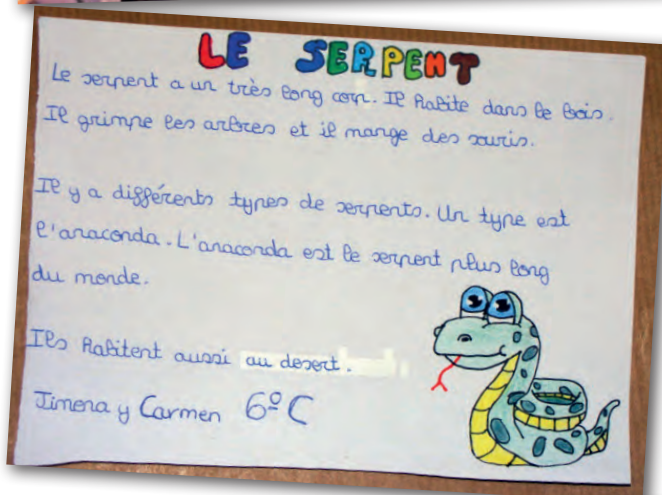 LE SERPENT
Le serpent a un très long corp. Il habite dans le bois.
Il grimpe les arbres et il mange des souris.
Il y a différents types de serpents. Un type est
l'anaconda. L'anaconda est le serpent plus long
du monde.
Ils habitent aussi au desert.
Jimena y Carmen 6º C